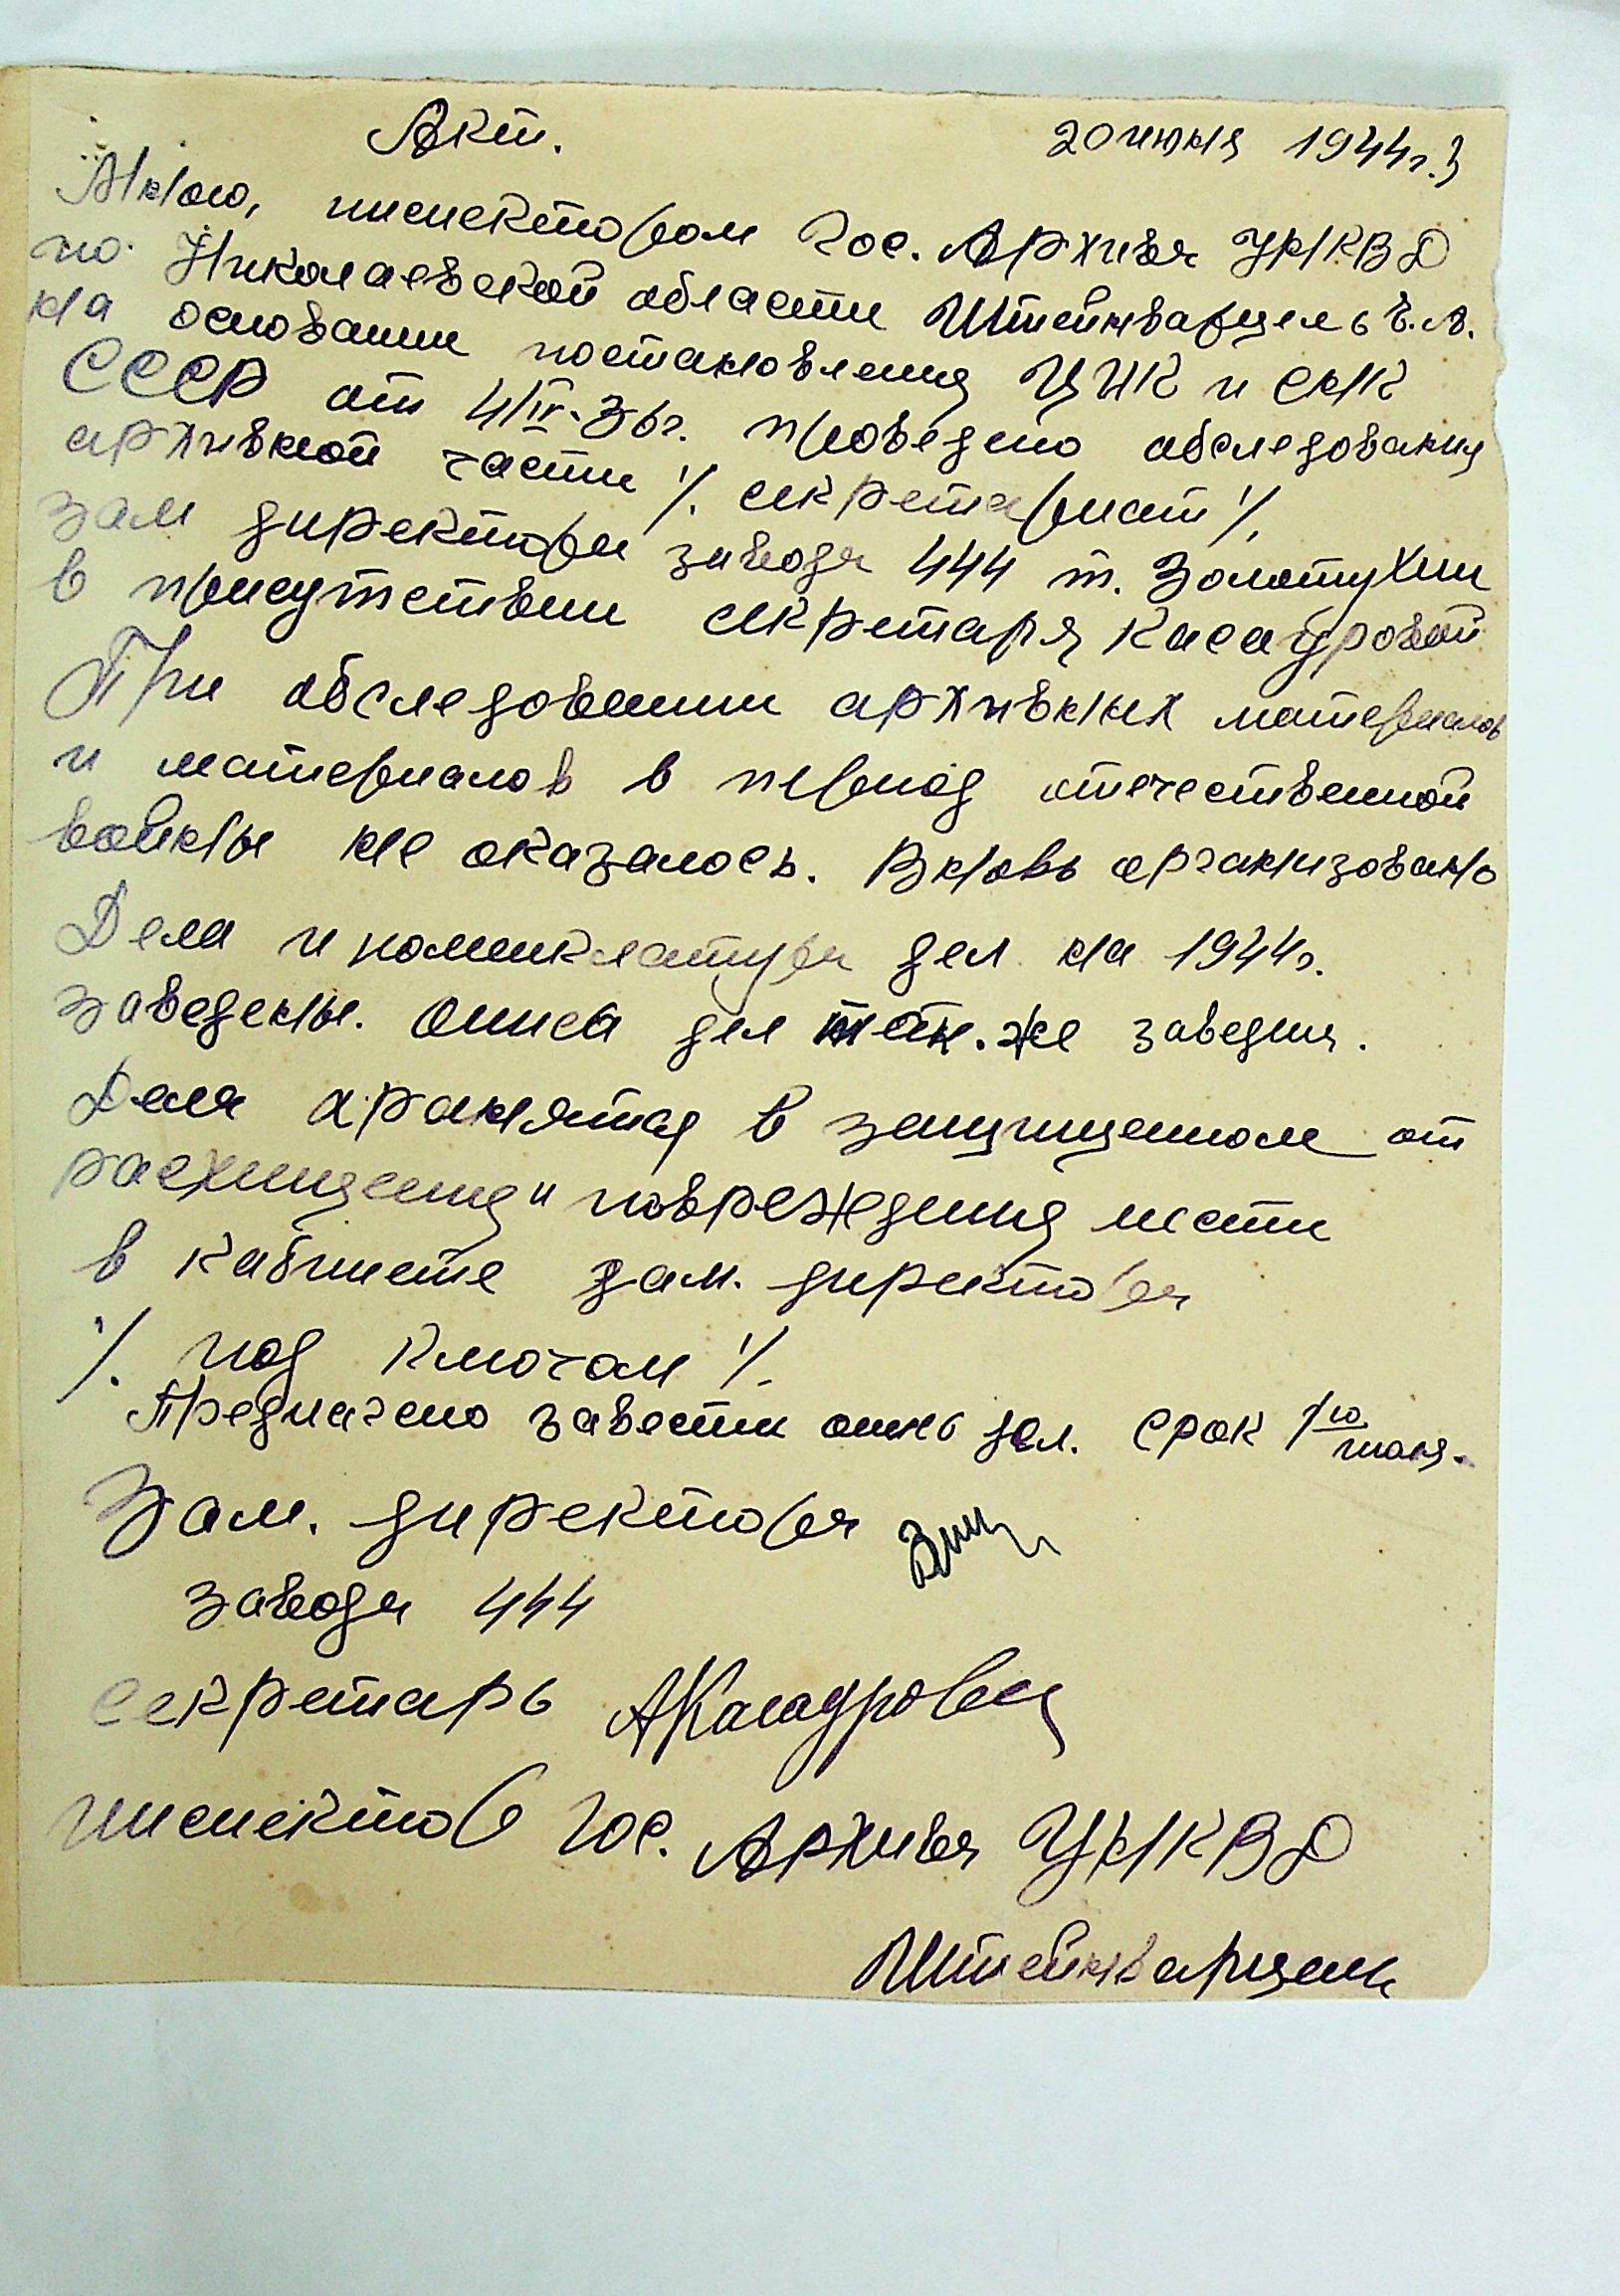 Акт.
20 июня 1944г.
Мною, инспектором Гос. Архива УНКВД
по Николаевской области Штейнварцель Е.А.
на основании постановления ЦИК и СНК
СССР от 4/IV-36г. проведено обследования
архивной части /. секретариат /.
зам директора завода 444 т. Золотухин
в присутствии секретаря Касауровой
При обследовании архивных материалов
и материалов в период отечественной
войны не оказалось. Вновь организовано
Дела и номенклатура дел на 1944г.
заведены. Описа дел так.же заведина.
Дела хранятся в защищенном от
расхищения и повреждения места
в кабинете зам. директора
/. под ключом /.
Предлагено завести опись дел. Срок
Зам. директора
завода 444
Секретарь АКасаурова
инспектор Гос. Архива УНКВД
Штейнварцель